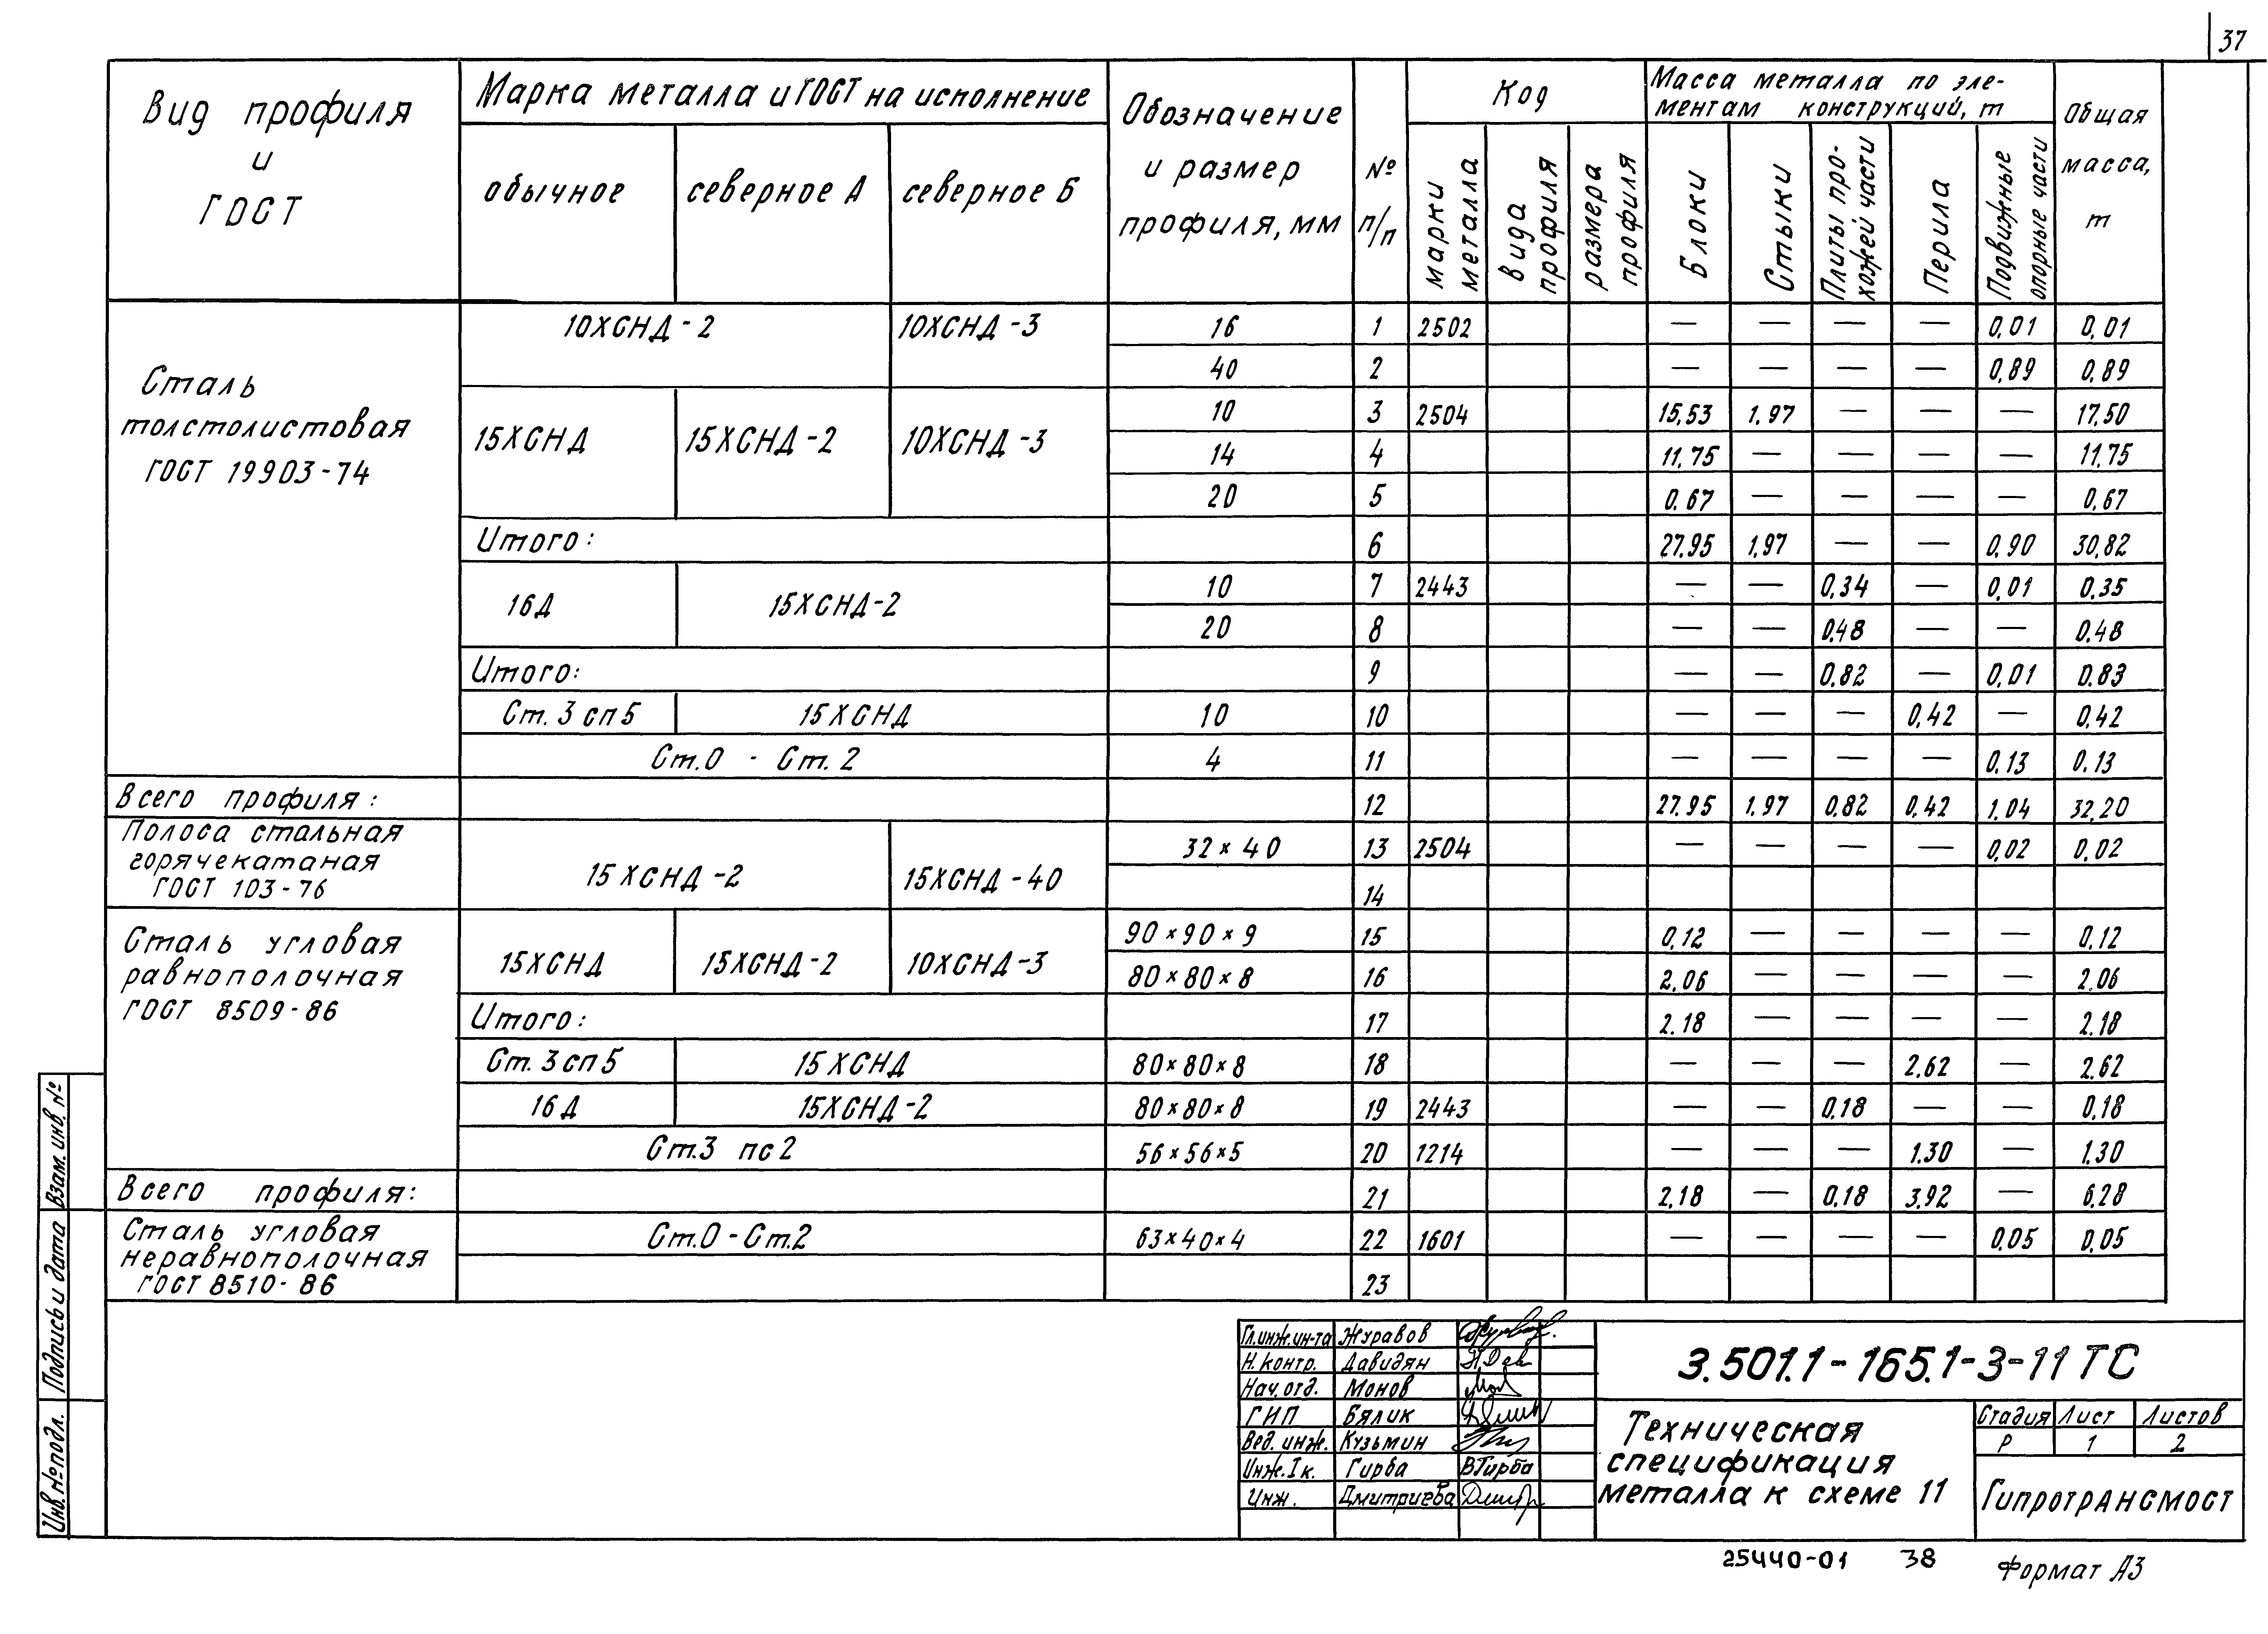 37
Вид профиля и ГОСТ
Марка металла и ГОСТ на исполнение
обычное
северное А
северное Б
Обозначение и размер профиля, мм
№ п/п
Код
марки металла
вида профиля
размера профиля
Масса металла по эле-
ментам конструкций, т
Блоки
Стыки
Плиты про-
хожей части
Перила
Подвижные опорные части
Общая масса, т
Сталь
толстолистовая
ГОСТ 19903-74
10ХСНД-2 10ХСНД-3 16 1 2502 — — — — 0,01 0,01
40 2 — — — — 0,89 0,89
15ХСНД 15ХСНД-2 10ХСНД-3 10 3 2504 15,53 1.97 — — — 17,50
14 4 11,75 — — — — 11,75
20 5 0.67 — — — — 0,67
Итого: 6 27.95 1,97 — — 0,90 30,82
16Д 15ХСНД-2 10 7 2443 — — 0,34 — 0,01 0,35
20 8 — — 0,48 — — 0,48
Итого: 9 — — 0.82 — 0,01 0.83
Ст. 3 сп 5 15ХСНД 10 10 — — — 0,42 — 0,42
Ст.0 - Ст. 2 4 11 — — — — 0.13 0.13
Всего профиля: 12 27.95 1.97 0,82 0,42 1.04 32,20
Полоса стальная
горячекатаная
ГОСТ 103-76
15ХСНД-2 15ХСНД-40 32×40 13 2504 — — — — 0,02 0,02
14
Сталь угловая
равнополочная
ГОСТ 8509-86
15ХСНД 15ХСНД-2 10ХСНД-3 90×90×9 15 0,12 — — — — 0,12
80×80×8 16 2,06 — — — — 2.06
Итого: 17 2.18 — — — — 2.18
Ст. 3 сп 5 15ХСНД 80×80×8 18 — — — 2,62 — 2,62
16Д 15ХСНД-2 80×80×8 19 2443 — — 0,18 — — 0,18
Ст.3 пс 2 56×56×5 20 1214 — — — 1.30 — 1.30
Всего профиля: 21 2,18 — 0,18 3,92 — 6,28
Сталь угловая
неравнополочная
ГОСТ 8510-86
Ст.0 - Ст.2 63×40×4 22 1601 — — — — 0,05 0,05
23
Взам. инв. №
Подпись и дата
Инв. № подл.
Гл.инж.ин-та Журавов
Н. контр. Давидян
Нач. отд. Монов
ГИП Бялик
Вед. инж. Кузьмин
Инж. I к. Гирба ВГирба
Инж. Дмитриева
3.501.1-165.1-3-11 ТС
Техническая
спецификация
металла к схеме 11
Стадия Лист Листов
Р 1 2
Гипротрансмост
25440-01 38 Формат А3